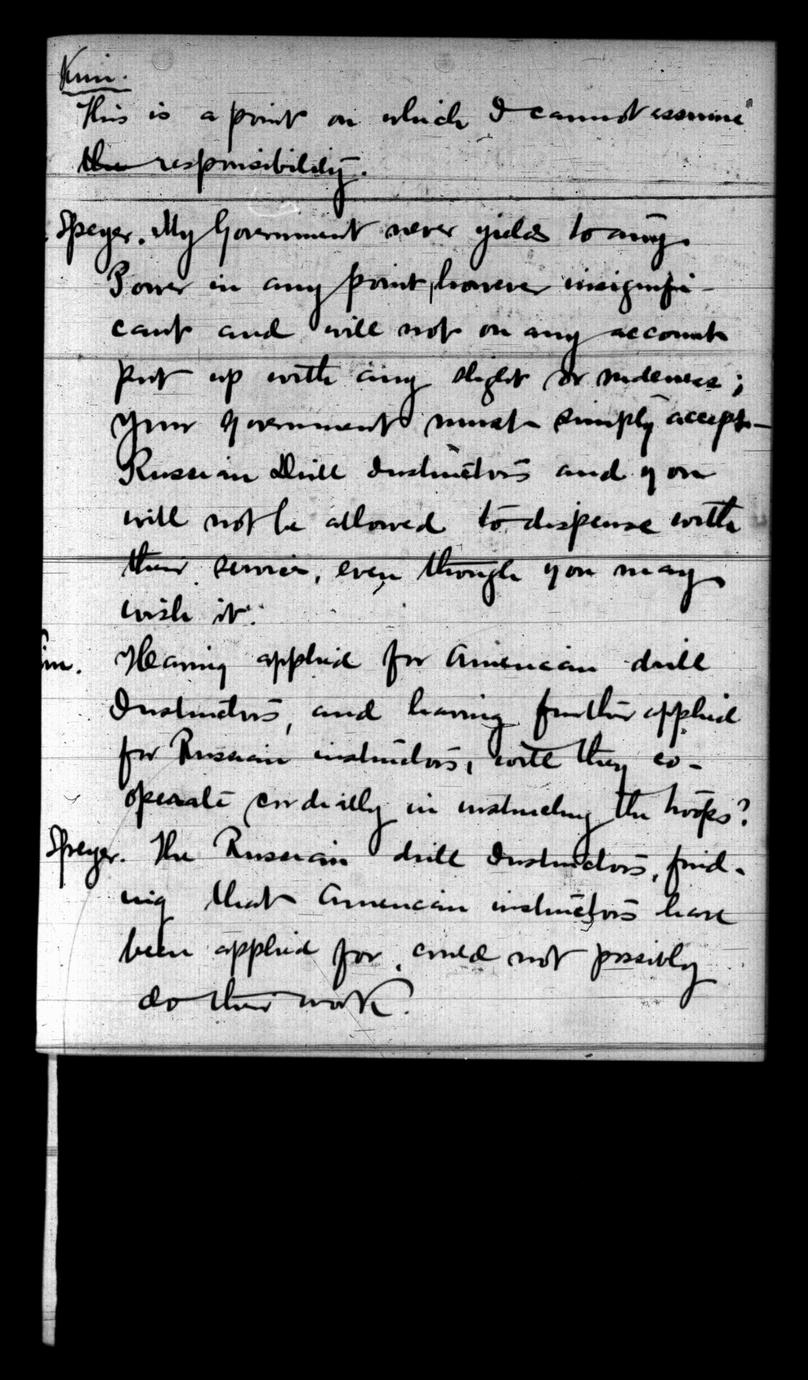 Kim.
This is a point on which I cannot assume
the responsibility.
Speyer. My Government never yields to any
Power in any point, however insignifi-
cant and will not on any account
put up with any slight or rudeness;
your government must simply accept
Russian Drill Instructors and you
will not be allowed to dispense with
their service, even though you may
wish it.
im. Having applied for American drill
Instructors, and having further applied
for Russian instructors, will they co-
operate cordially in instructing the troops?
Speyer. The Russian drill Instructors, find-
ing that American instructors have
been applied for, could not possibly
do their work.